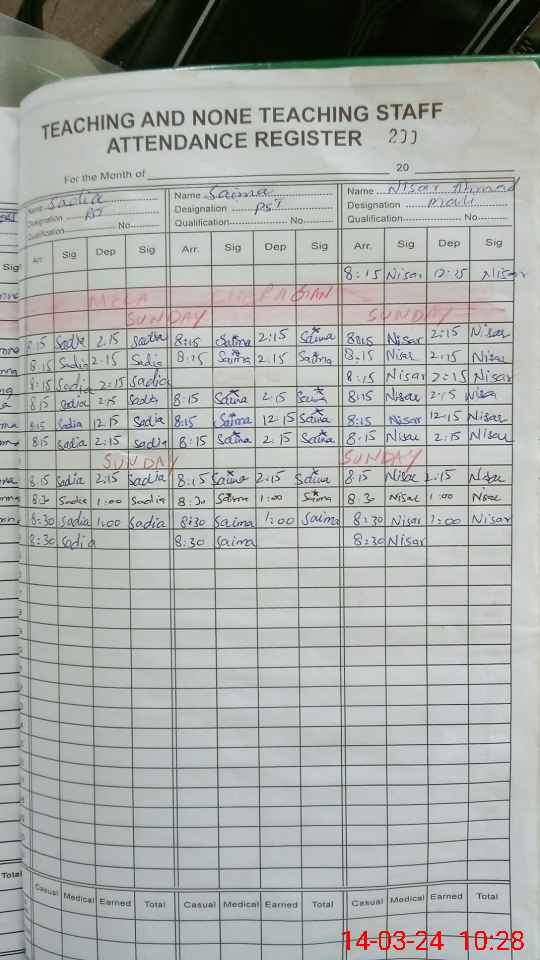 TEACHING AND NONE TEACHING STAFF
ATTENDANCE REGISTER
For the Month of 20
Name Sadia Name Saima Name Nisar Ahmad
Designation Designation PST Designation mali
Qualification No. Qualification No. Qualification No.
Arr. Sig Dep Sig Arr. Sig Dep Sig Arr. Sig Dep Sig
8:15 Nisar 12:15 Nisar
SUNDAY SUNDAY
8:15 Sadia 2:15 Sadia 8:15 Saima 2:15 Saima 8:15 Nisar 2:15 Nisar
8:15 Sadia 2:15 Sadia 8:15 Saima 2:15 Saima 8:15 Nisar 2:15 Nisar
8:15 Sadia 2:15 Sadia 8:15 Nisar 2:15 Nisar
8:15 Sadia 2:15 Sadia 8:15 Saima 2:15 Saima 8:15 Nisar 2:15 Nisar
8:15 Sadia 12:15 Sadia 8:15 Saima 12:15 Saima 8:15 Nisar 12:15 Nisar
8:15 Sadia 2:15 Sadia 8:15 Saima 2:15 Saima 8:15 Nisar 2:15 Nisar
SUNDAY SUNDAY
8:15 Sadia 2:15 Sadia 8:15 Saima 2:15 Saima 8:15 Nisar 2:15 Nisar
8:30 Sadia 1:00 Sadia 8:30 Saima 1:00 Saima 8:30 Nisar 1:00 Nisar
8:30 Sadia 1:00 Sadia 8:30 Saima 1:00 Saima 8:30 Nisar 1:00 Nisar
8:30 Sadia 8:30 Saima 8:30 Nisar
Total Casual Medical Earned Total Casual Medical Earned Total Casual Medical Earned Total
14-03-24 10:28